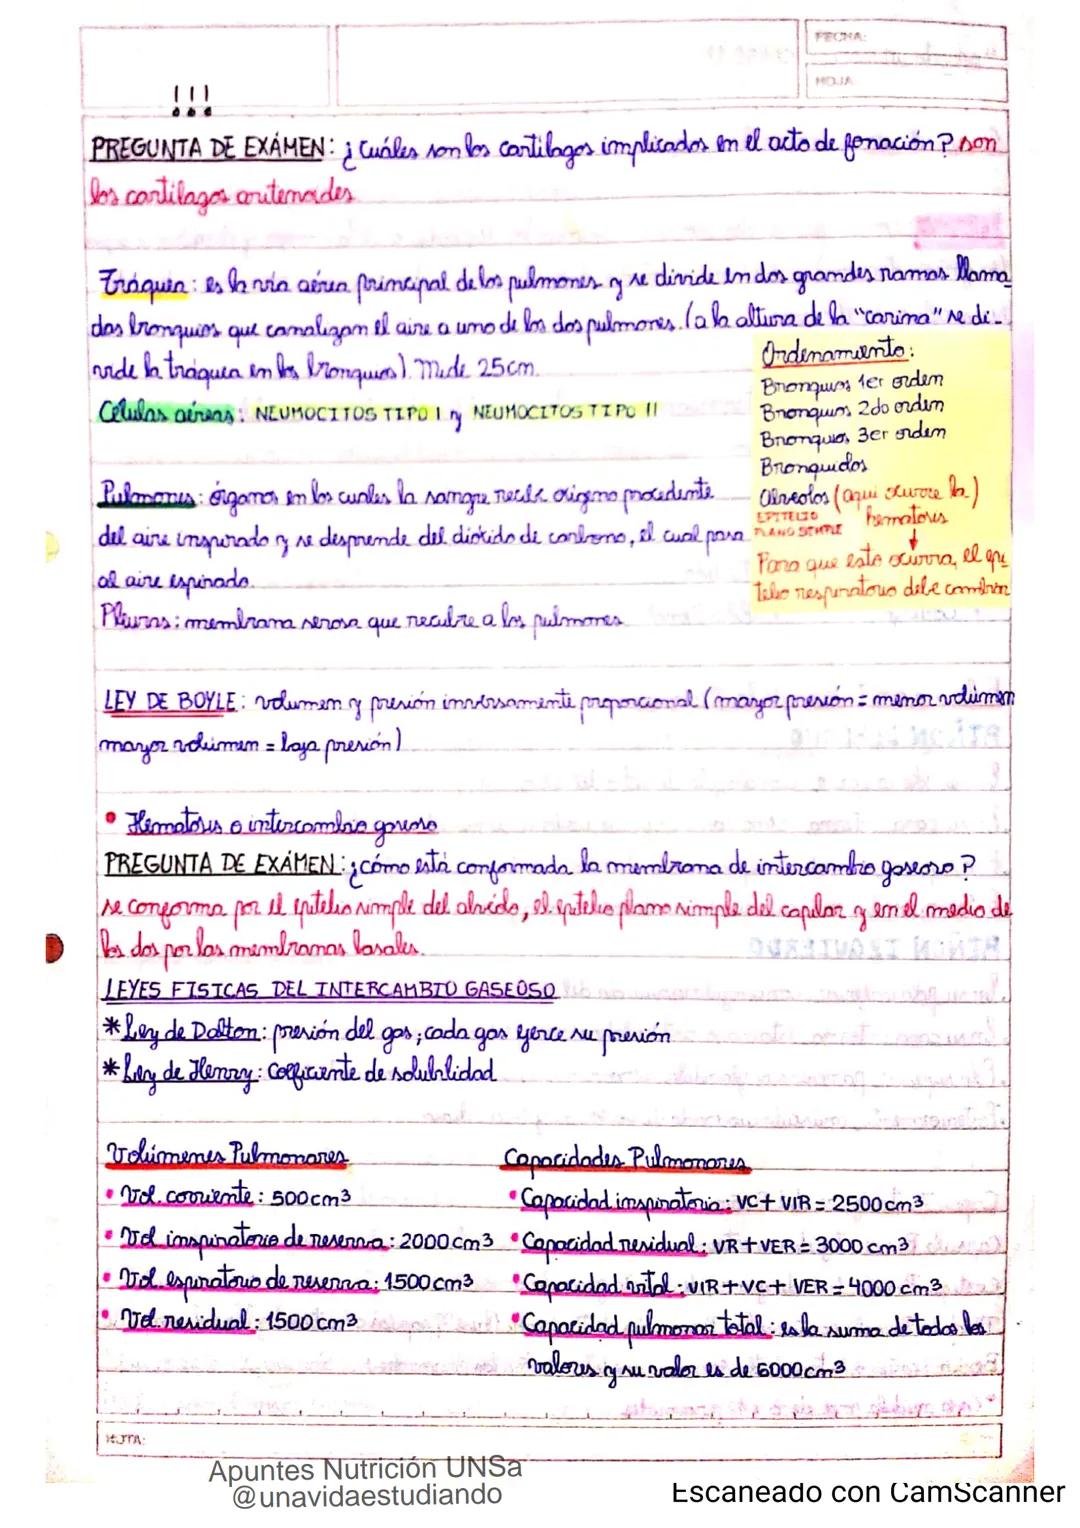 FECHA:
HOJA
!!!
PREGUNTA DE EXÁMEN: ¿Cuáles son los cartilagos implicados en el acto de fonación? son
los cartilagos aritenoides
Tráquea: es la vía aérea principal de los pulmones y se divide en dos grandes ramas llama
das bronquios que canalizan el aire a uno de los dos pulmones. (a la altura de la "carina" se di-
vide la tráquea en los bronquios). Mide 25cm.
Células aéreas: NEUMOCITOS TIPO I y NEUMOCITOS TIPO II
Ordenamiento:
Bronquios 1er orden
Bronquios 2do orden
Bronquios 3er orden
Bronquidos
Alveolos (aquí ocurre la)
EPITELIO
PLANO SIMPLE
hematosis
Para que esto ocurra, el epi
telio respiratorio debe cambiar
Pulmones: órganos en los cuales la sangre recibe oxígeno procedente
del aire inspirado y se desprende del dióxido de carbono, el cual pasa
al aire espirado.
Pleuras: membrana serosa que recubre a los pulmones
LEY DE BOYLE: volumen y presión inversamente proporcional (mayor presión = menor volúmen
mayor volúmen = baja presión)
• Hematosis o intercambio gaseoso
PREGUNTA DE EXÁMEN: ¿cómo está conformada la membrana de intercambio gaseoso?
se conforma por el epitelio simple del alveolo, el epitelio plano simple del capilar y en el medio de
los dos por las membranas basales.
LEYES FISICAS DEL INTERCAMBIO GASEOSO
* Ley de Dalton: presión del gas; cada gas ejerce su presión
* Ley de Henry: Coeficiente de solubilidad
Volúmenes Pulmonares
• Vol. corriente: 500cm3
• Vol inspiratorio de reserva: 2000cm3
• Vol espiratorio de reserva: 1500cm3
• Vol. residual: 1500cm3
Capacidades Pulmonares
• Capacidad inspiratoria: VC+ VIR = 2500cm3
• Capacidad residual: VR+VER= 3000 cm3
• Capacidad vital: VIR+VC+ VER = 4000 cm3
• Capacidad pulmonar total: es la suma de todos los
valores y su valor es de 6000cm3
NOTA:
Apuntes Nutrición UNSa
@unavidaestudiando
Escaneado con CamScanner